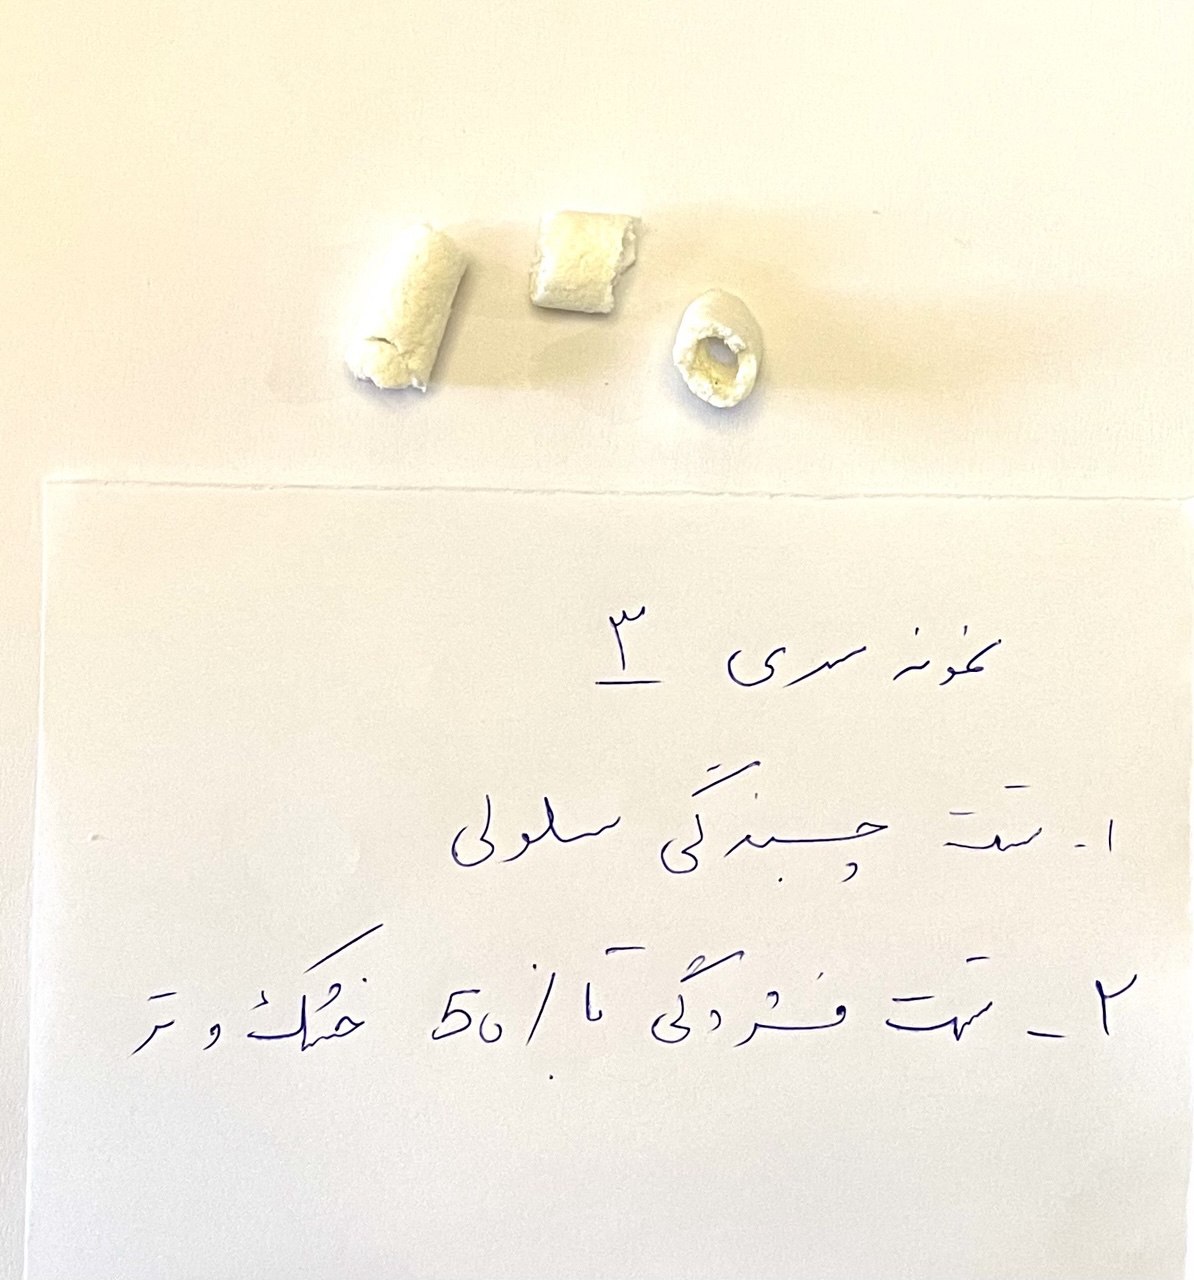 نمونه سری ۳
۱- تست چسبندگی سلولی
۲- تست فشردگی تا 50٪ خشک و تر